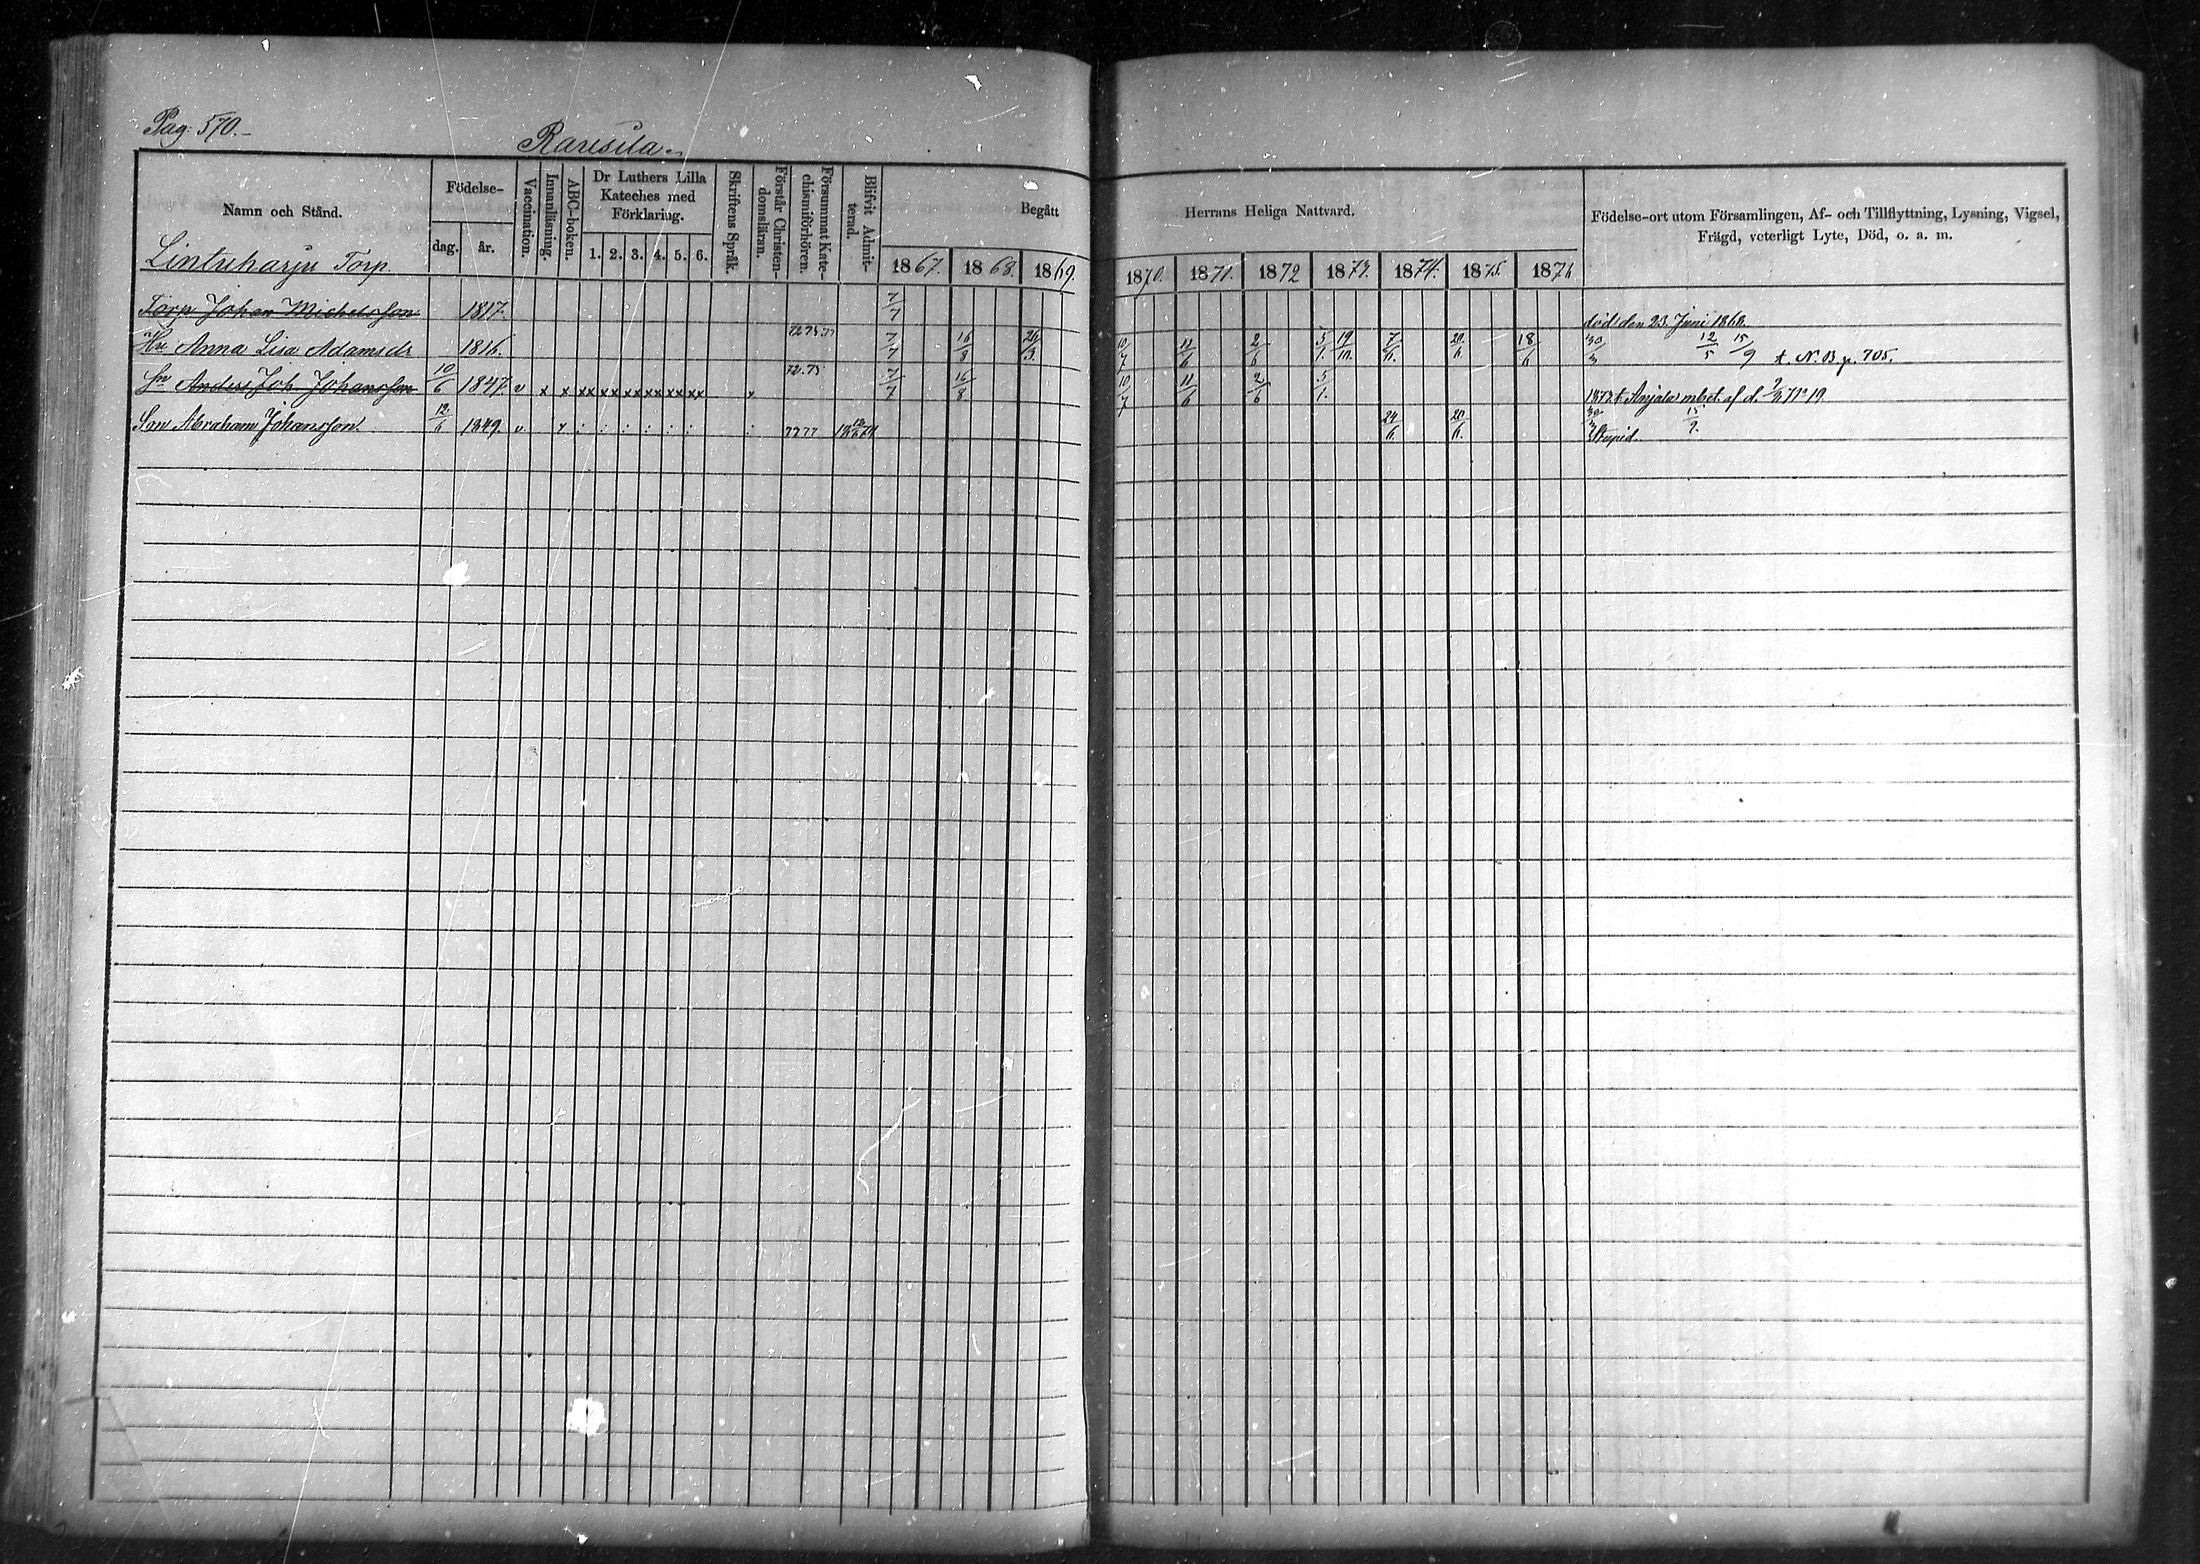 Pag: 570.
Raussila
Namn och Stånd. Födelse- dag. år. Vaccination. Innanläsning. ABC-boken. Dr Luthers Lilla Kateches med Förklaring. 1. 2. 3. 4. 5. 6. Skriftens Språk. Förstår Christendomsläran. Försummat Katechismiförhören. Blifvit Admitterad. Begått Herrans Heliga Nattvard. Födelse-ort utom Församlingen, Af- och Tillflyttning, Lysning, Vigsel, Frägd, veterligt Lyte, Död, o. a. m.
Lintuharju Torp. 1867. 1868. 1869. 1870. 1871. 1872 1873. 1874. 1875. 1876
Torp Johan Michelsson 1817. 7/7 död den 23 Juni 1868.
Hu Anna Lisa Adamsdr 1816. 72 75.77 7/7 16/8 10/7 11/6 2/6 5/1. 19/10. 7/6. 20/6. 18/6 30/3 12/5 15/9 t. N. B. p. 705.
Sn Anders Joh. Johansson 10/6 1847. v x x xx xx xx xx xx xx x 72.75 7/7 16/8 10/7 11/6 2/6 5/1. t Anjala mbet. af d.
Son Abraham Johansson. 12/6 1849. v. x : : : : : : : 72 77 24/6. 20/6. 30/3 15/9. Stupid.